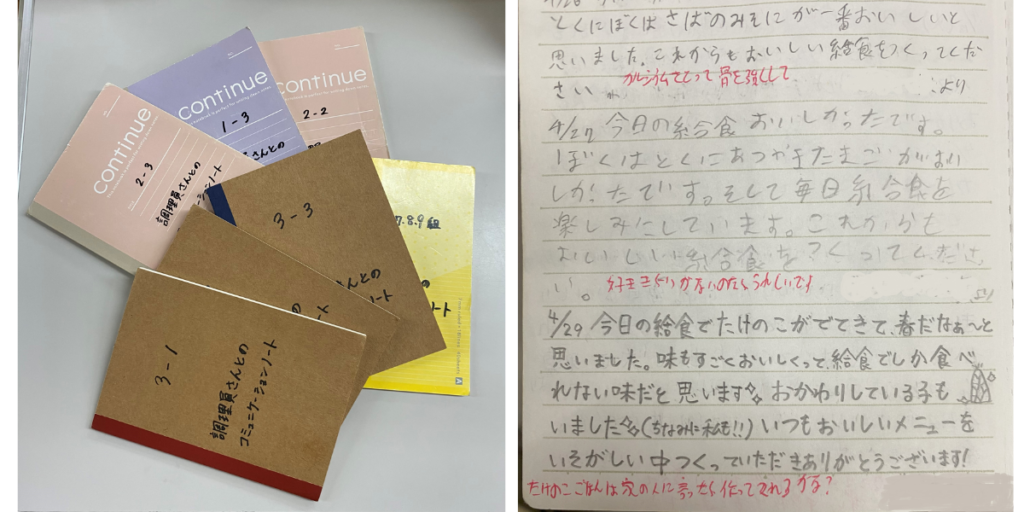 continue
2-2
continue
1-3
continue
2-3
調理員さんとの
3-3
7.8.9組
3-1
調理員さんとの
コミュニケーションノート
とくにぼくはさばのみそにが一番おいしいと
思いました。これからもおいしい給食をつくってくだ
さい。
カルシウムとって骨を強くして
より
4/27 今日の給食おいしかったです。
ぼくはとくにあつやきたまごがおい
しかたです。そして毎日給食を
楽しみにしています。これからも
おいしい給食をつくってくださ
い。
好ききらいがないのたらうれしいです
より
4/29 今日の給食でたけのこがでてきて、春だなぁ〜と
思いました。味もすごくおいしくって、給食でしか食べ
れない味だと思います おかわりしている子も
いました(ちなみに私も!!)いつもおいしいメニューを
いそがしい中つくっていただきありがとうございます!
たけのこごはんは家の人に言ったら作ってくれるかな?